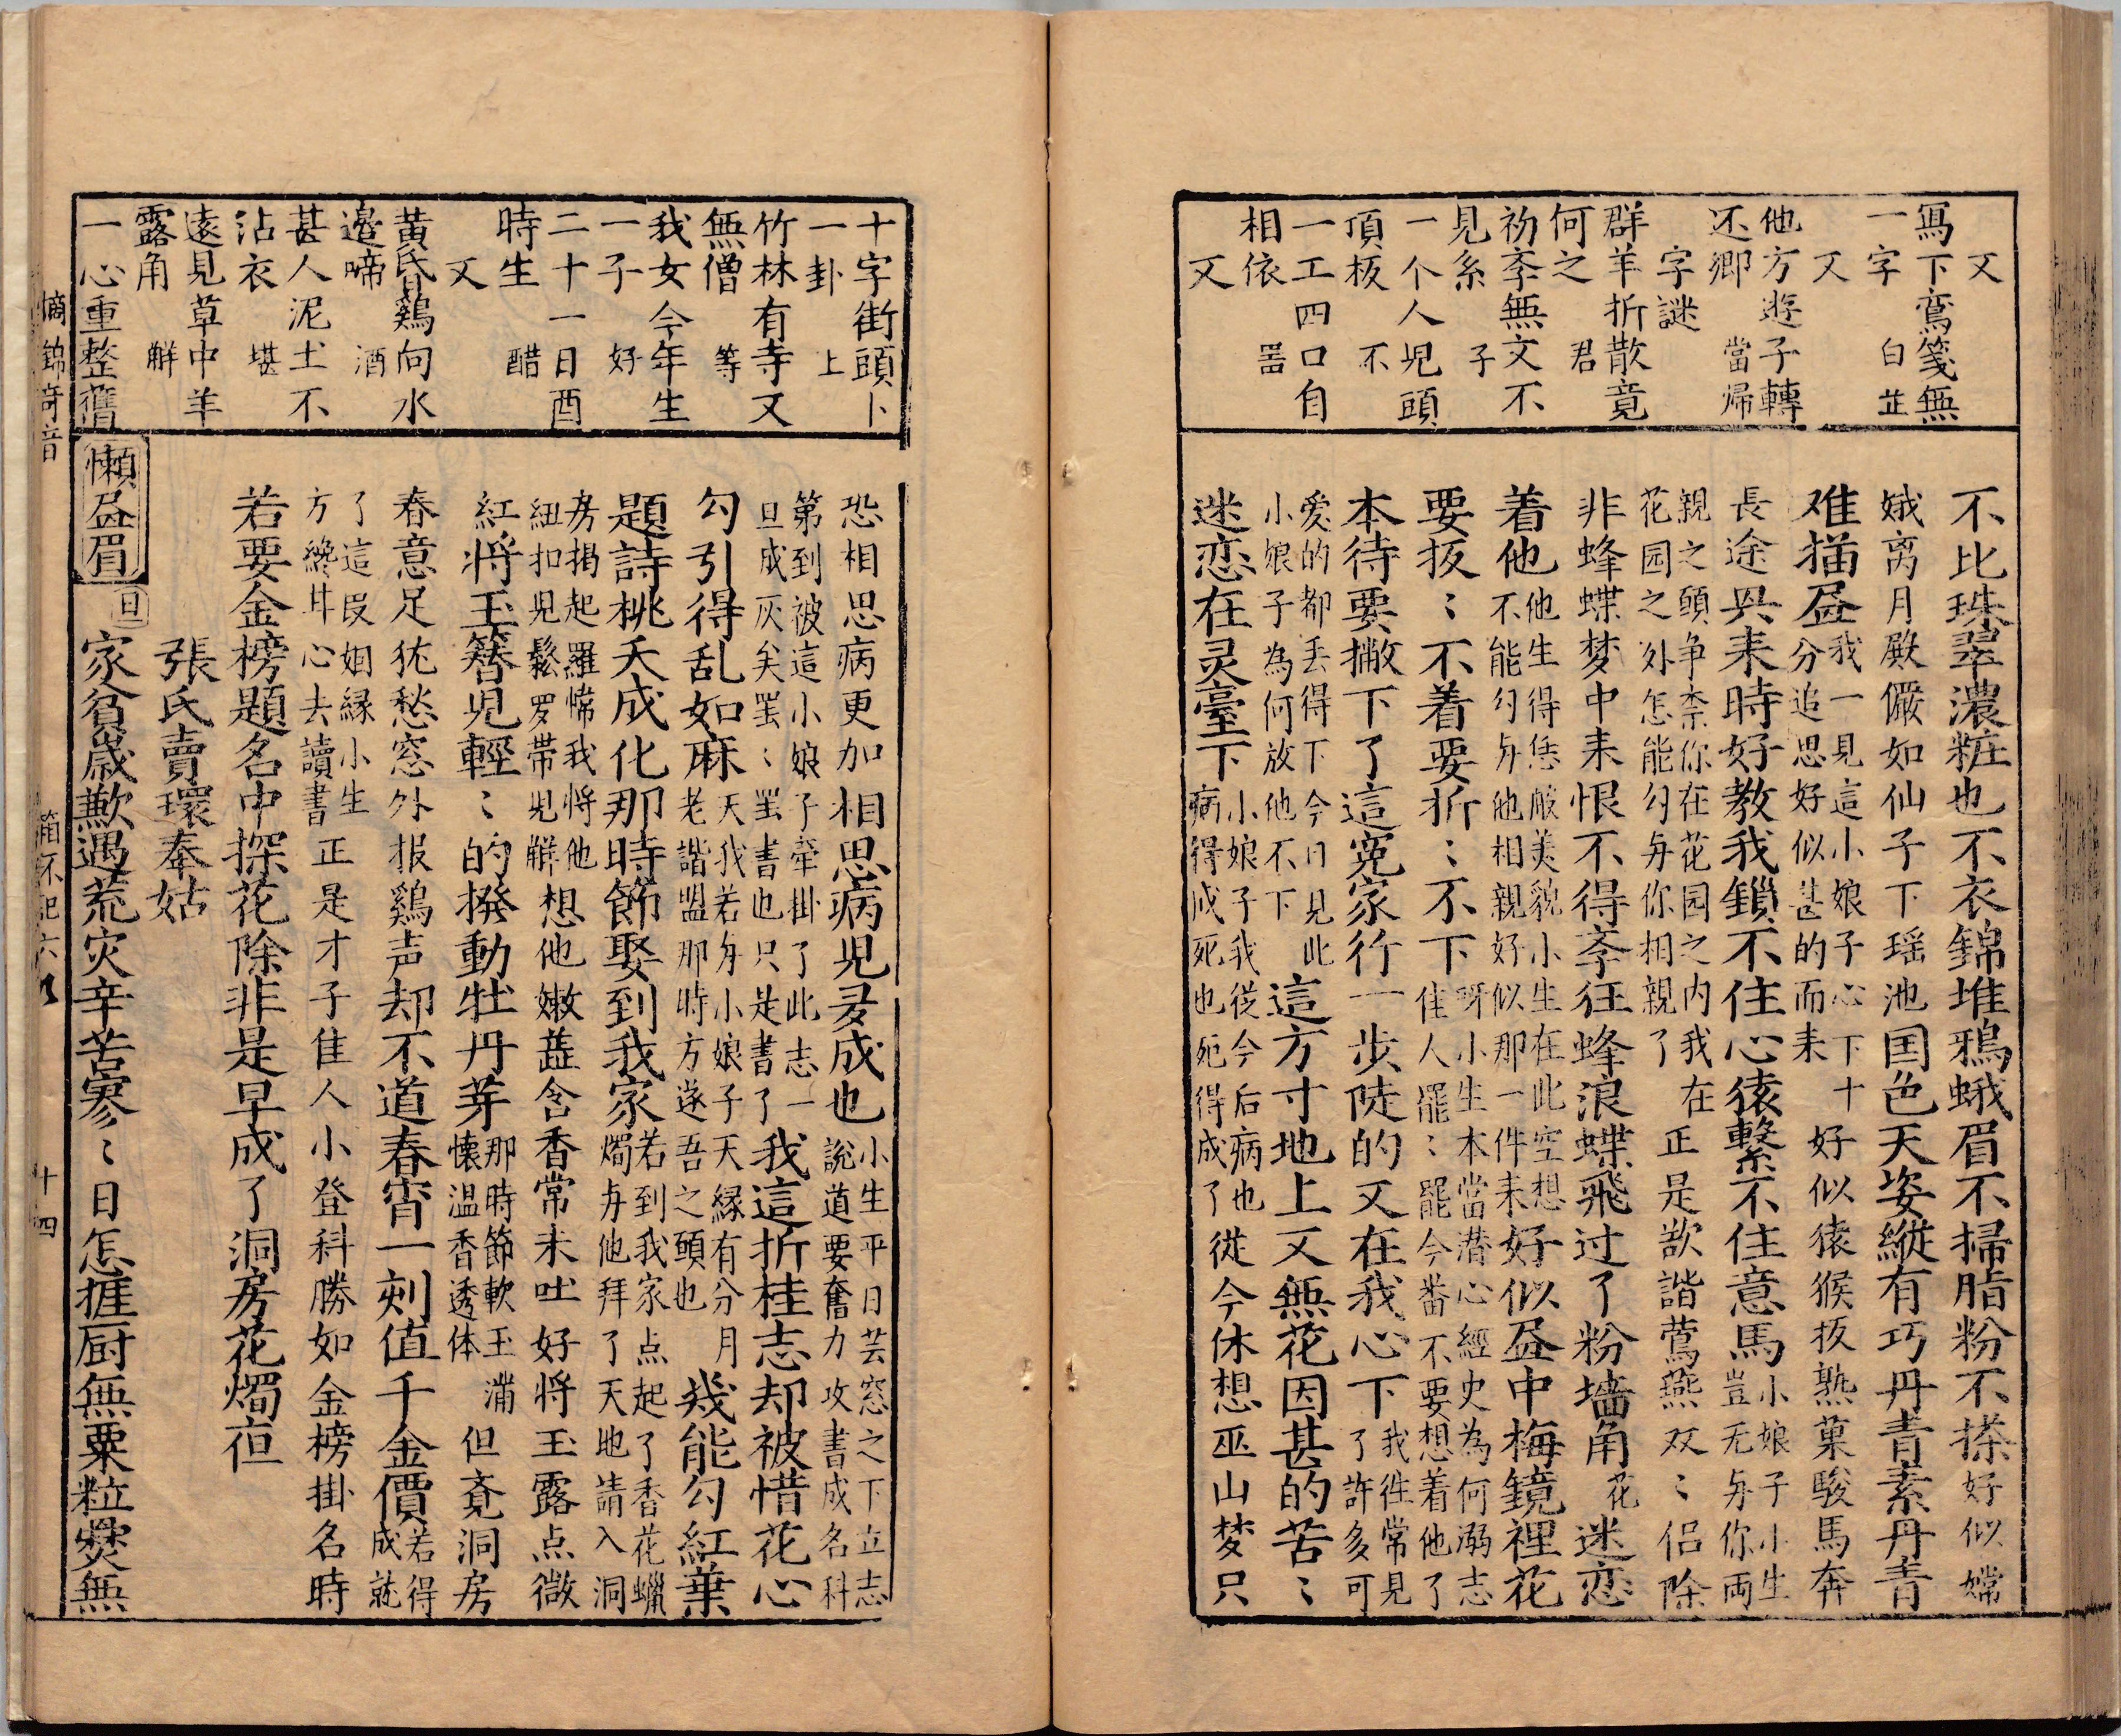 又
寫下鸞箋無
一字　白芷
又
他方遊子轉
还鄉　當歸
字謎
群羊折散竟
何之　君
初孛無文不
見糸　子
一个人児頭
頂板　不
一工四口自
相依　噐
又
不比珠翠濃粧也不衣錦堆鴉蛾眉不掃脂粉不搽好似嫦
娥离月殿儼如仙子下瑶池国色天姿縱有巧丹青素丹青
难描昼我一見這小娘子心下十
分追思好似甚的而来好似猿猴扳熟菓駿馬奔
長途具来時好教我鎖不住心猿繫不住意馬小娘子小生
豈无与你両
親之頭争柰你在花园之内我在
花园之外怎能勾与你相親了正是歃諧鶯燕双〻侣除
非蜂蝶梦中来恨不得孛狂蜂浪蝶飛过了粉墻角花迷恋
着他他生得恁般美貌小生在此空想
不能勾与他相親好似那一件来好似昼中梅鏡裡花
要扳〻不着要折〻不下呀小生本當潜心經史為何溺志
佳人罷〻罷今番不要想着他了
本待要撇下了這寃家行一步陡的又在我心下我徃常見
了許多可
爱的都丢得下今日見此
小娘子為何放他不下這方寸地上又無花因甚的苦〻
迷恋在灵臺下小娘子我従今后病也
病得成死也死得成了從今休想巫山梦只
十字街頭卜
一卦　上
竹林有寺又
無僧　等
我女今年生
一子　好
二十一日酉
時生　醋
又
黄昏鷄向水
邉啼　酒
甚人泥土不
沾衣　堪
遠見草中羊
露角　觧
一心重整舊
恐相思病更加相思病児叐成也小生平日芸窓之下立志
說道要奮力攻書成名科
第到被這小娘子牽掛了此志一
旦成灰矣罢〻罢書也只是書了我這折桂志却被惜花心
勾引得乱如麻天我若与小娘子天縁有分月
老諧盟那時方遂吾之頭也幾能勾紅葉
題詩桃夭成化那時節娶到我家若到我家点起了香花蠟
燭与他拜了天地請入洞
房揭起羅幃我将他
紐扣児鬆罗帶児觧想他嫩蕋含香常未吐好將玉露点微
紅将玉簪児輕〻的撥動牡丹芽那時節軟玉滿
懐温香透体但竟洞房
春意足犹愁窓外报鷄声却不道春宵一刻值千金價若得
成就
了這段姻縁小生
方纔甘心去讀書正是才子佳人小登科勝如金榜掛名時
若要金榜題名中探花除非是早成了洞房花燭夜
張氏賣環奉姑
懶昼眉
旦
家貧歲歉遇荒灾辛苦寥〻日怎捱厨無粟粒㷊無
摘錦奇音
箱环記六巻
十四